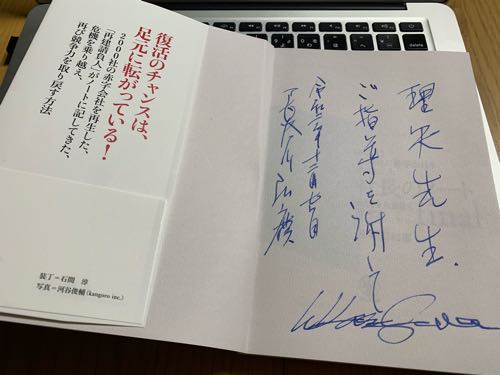 理央先生.
ご指導を謝して
令和 年十二月 日
長谷川和廣
復活のチャンスは、
足元に転がっている！
2000社の赤字会社を再生した、
「再建請負人」がノートに記してきた、
危機を乗り越え、
再び競争力を取り戻す方法
装丁＝石間 淳
写真＝河谷俊輔（kanguro inc.）